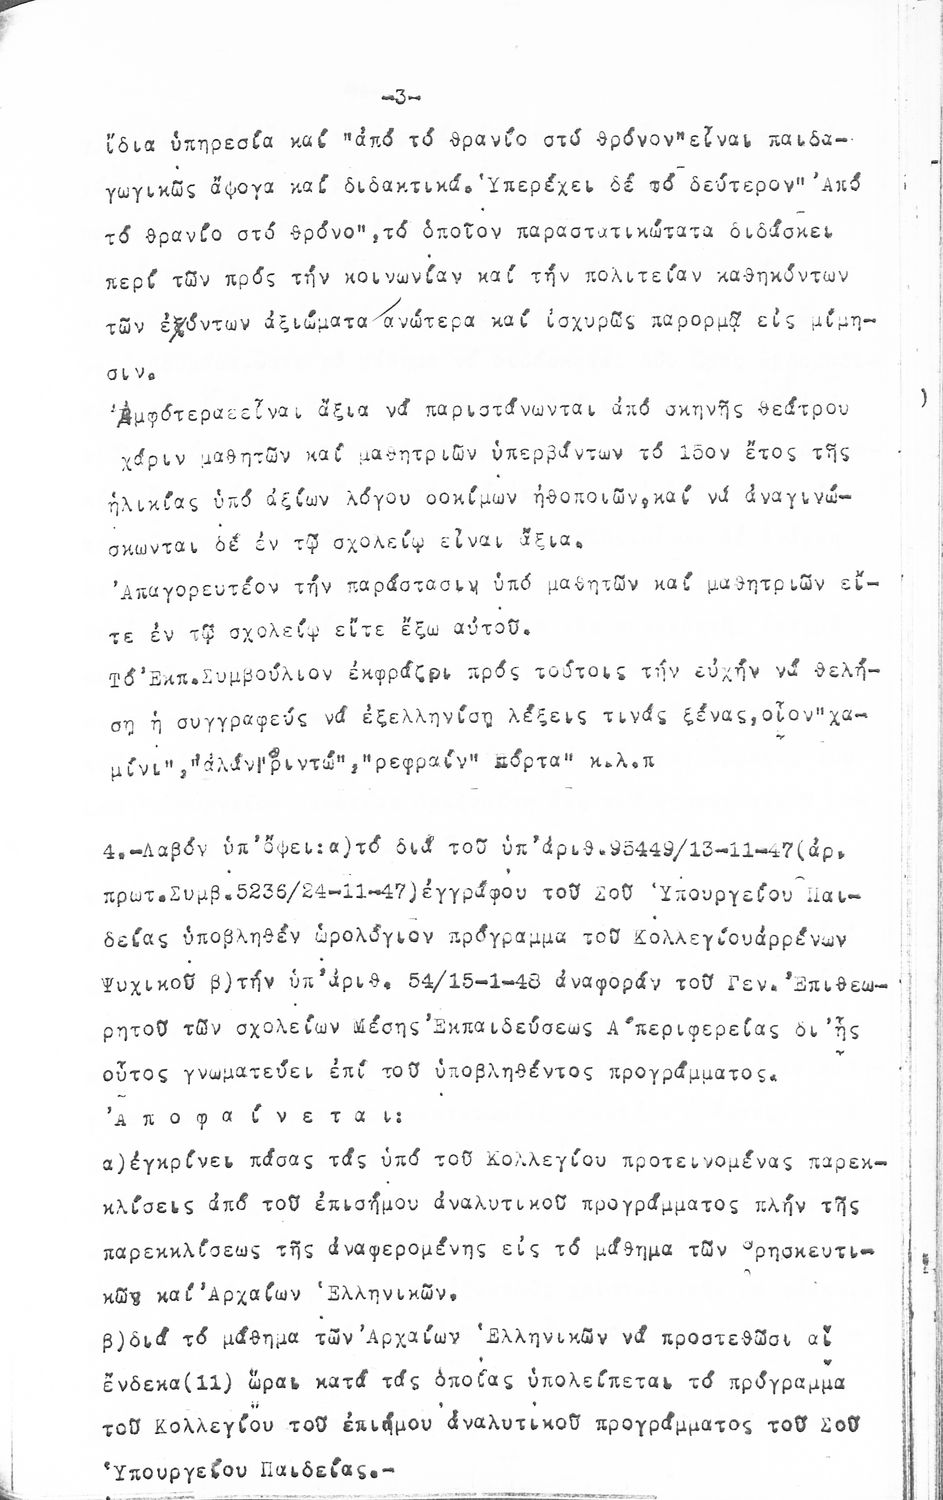 -3-
ἴδια ὑπηρεσία καί "ἀπό τό θρανίο στό θρόνον"εἶναι παιδα-
γωγικῶς ἄψογα καί διδακτικά.Ὑπερέχει δέ τό δεύτερον"Ἀπό
τό θρανίο στό θρόνο",τό ὁποῖον παραστατικώτατα διδάσκει
περί τῶν πρός τήν κοινωνίαν καί τήν πολιτείαν καθηκόντων
τῶν ἐχόντων ἀξιώματα ἀνώτερα καί ἰσχυρῶς παρορμᾷ εἰς μίμη-
σιν.
Ἀμφότερα εἶναι ἄξια νά παριστάνωνται ἀπό σκηνῆς θεάτρου
χάριν μαθητῶν καί μαθητριῶν ὑπερβάντων τό 15ον ἔτος τῆς
ἡλικίας ὑπό ἀξίων λόγου δοκίμων ἠθοποιῶν,καί νά ἀναγινώ-
σκωνται δέ ἐν τῷ σχολείῳ εἶναι ἄξια.
Ἀπαγορευτέον τήν παράστασιν ὑπό μαθητῶν καί μαθητριῶν εἴ-
τε ἐν τῷ σχολείῳ εἴτε ἔξω αὐτοῦ.
Τό Ἐκπ.Συμβούλιον ἐκφράζει πρός τούτοις τήν εὐχήν νά θελή-
ση ἡ συγγραφεύς νά ἐξελληνίση λέξεις τινάς ξένας,οἷον"χα-
μίνι", "ρεφραίν" πόρτα" κ.λ.π
4.-Λαβόν ὑπ'ὄψει:α)τό διά τοῦ ὑπ'ἀριθ.95449/13-11-47(ἀρ.
πρωτ.Συμβ.5236/24-11-47)ἐγγράφου τοῦ Σοῦ Ὑπουργείου Παι-
δείας ὑποβληθέν ὡρολόγιον πρόγραμμα τοῦ Κολλεγίουἀρρένων
Ψυχικοῦ β)τήν ὑπ'ἀριθ. 54/15-1-48 ἀναφοράν τοῦ Γεν.Ἐπιθεω-
ρητοῦ τῶν σχολείων Μέσης Ἐκπαιδεύσεως Α΄περιφερείας δι'ἧς
οὗτος γνωματεύει ἐπί τοῦ ὑποβληθέντος προγράμματος.
Ἀ π ο φ α ί ν ε τ α ι:
α)ἐγκρίνει πάσας τάς ὑπό τοῦ Κολλεγίου προτεινομένας παρεκ-
κλίσεις ἀπό τοῦ ἐπισήμου ἀναλυτικοῦ προγράμματος πλήν τῆς
παρεκκλίσεως τῆς ἀναφερομένης εἰς τό μάθημα τῶν θρησκευτι-
κῶν καί Ἀρχαίων Ἑλληνικῶν.
β)διά τό μάθημα τῶν Ἀρχαίων Ἑλληνικῶν νά προστεθῶσι αἵ
ἕνδεκα(11) ὧραι κατά τάς ὁποίας ὑπολείπεται τό πρόγραμμα
τοῦ Κολλεγίου τοῦ ἐπισήμου ἀναλυτικοῦ προγράμματος τοῦ Σοῦ
Ὑπουργείου Παιδείας.-